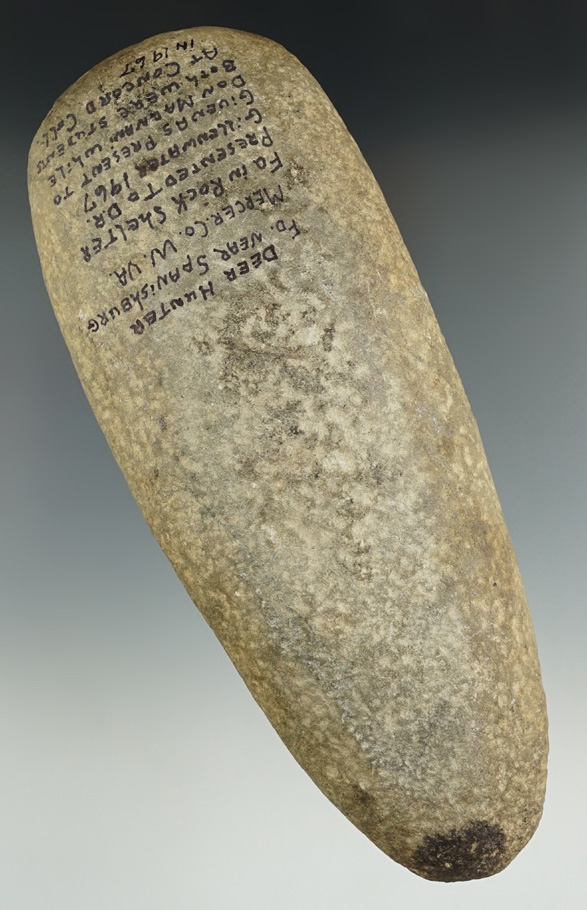 DEER HUNTER
FD. NEAR SPANISHBURG
MERCER.CO. W.VA.
FD IN ROCK SHELTER
PRESENTED TO DR.
GILLENWATER 1967
GIVEN AS PRESENT TO
DON WHILE
BOTH WERE STUDENTS
AT CONCORD COLL.
IN 1967